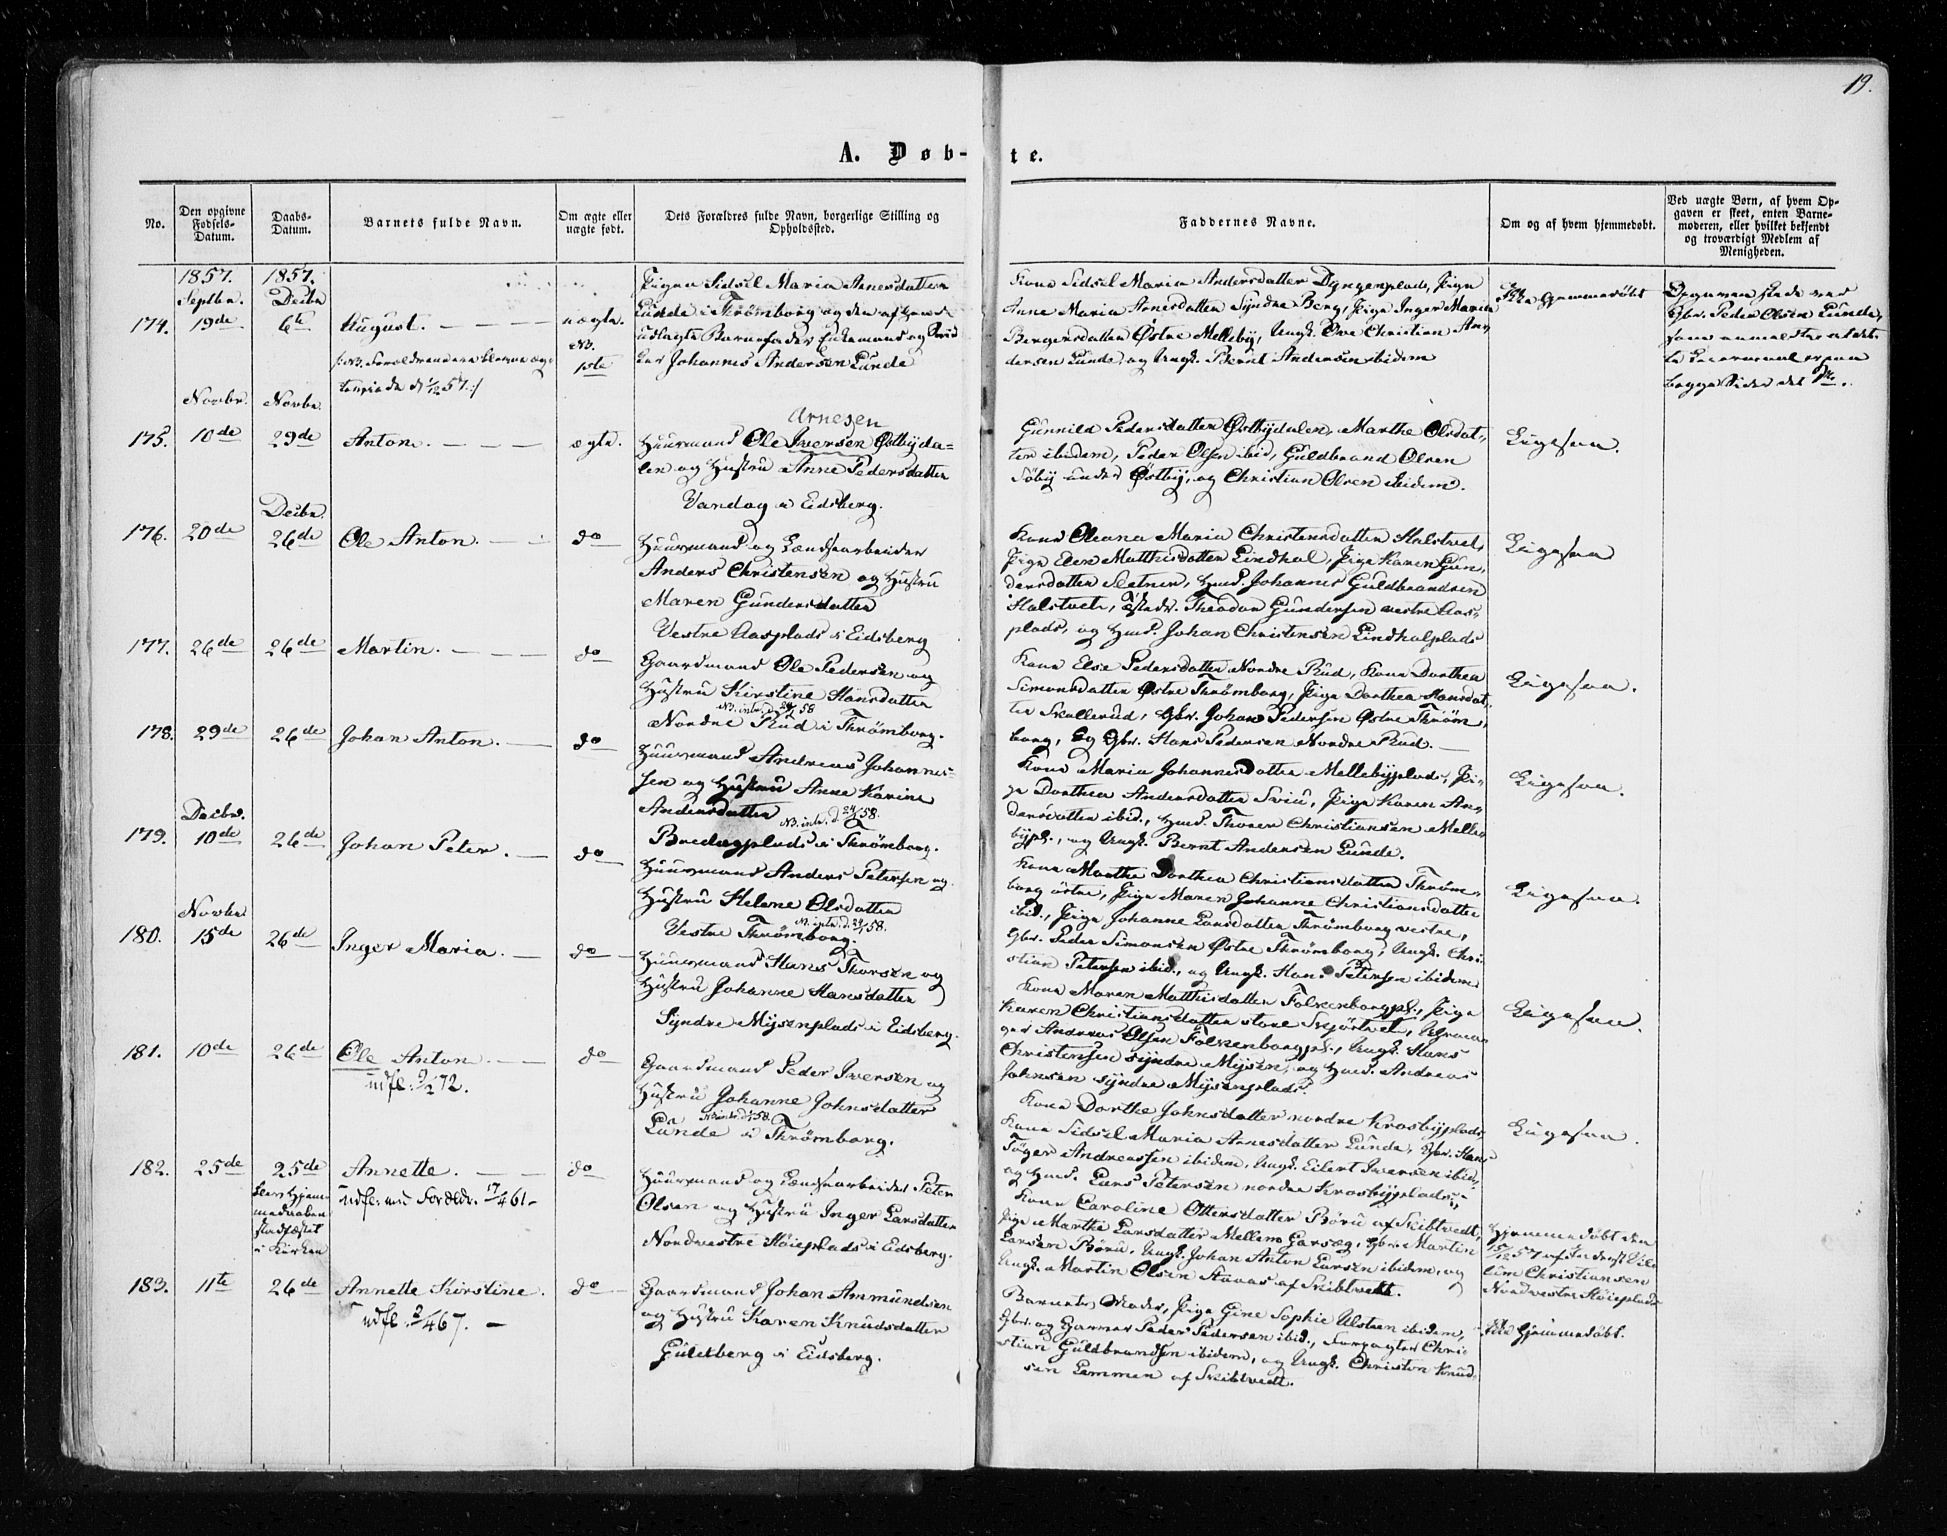 19.
A. Døb-te.
No.
Den opgivne Fødsels-Datum.
Daabs-Datum.
Barnets fulde Navn.
Om ægte eller uægte født.
Dets Forældres fulde Navn, borgerlige Stilling og Opholdssted.
Faddernes Navne.
Om og af hvem hjemmedøbt.
Ved uægte Børn, af hvem Opgaven er skeet, enten Barnemoderen, eller hvilket bekjendt og troværdigt Medlem af Menigheden.
1857. 1857.
Septbr. Decbr
174. 19de 6te August. uægte.
NB. 1ste
Pigen Sidsel Maria Arnesdatter
Lunde i Thrømborg og den af hende
udlagte Barnefader Enkemand og
Johannes Andersen Lunde
Kone Sidsel Maria Andersdatter Dyngenplads, Pige
Anne Maria Arnesdatter Syndre Berg, Pige Inger Maria
Bergersdatter Østre Melleby, Ungk. Ove Christian An-
dersen Lunde, og Ungk. Bernt Andersen ibidem
Ikke hjemmedøbt
Gbr. Peder Olsen Lunde,
Novbr. Novbr.
175. 10de 29de Anton. ægte.
Arnesen
Huusmand Ole Iversen Østbyda-
len og Hustru Anne Pedersdatter
Vandag i Eidsberg.
Gunnild Pedersdatter Østbydalen, Marthe Olsdat-
ter ibidem, Peder Olsen ibid, Guldbrand Olsen
Søby under Østby, og Christian Olsen ibidem.
Ligesaa.
Decbr.
176. 20de 26de Ole Anton. do
Huusmand og Landsarbeider
Anders Christensen og Hustru
Maren Gundersdatter
Vestre Aasplads i Eidsberg
Kone Oleana Maria Christensdatter Halstvet,
Pige Elen Matthisdatter Lindhol, Pige Karen Gun-
dersdatter Sletner, Hmd. Johannes Guldbrandsen
Halstvet, Theodor Gundersen vestre Aas-
plads, og Hmd. Johan Christensen Lindholplads
Ligesaa
177. 26de 26de Martin. do
Gaardmand Ole Pedersen og
Hustru Kirstine Hansdatter
Nordre Rud i Thrømborg.
Kone Else Pedersdatter Nordre Rud, Kone Dorthea
Simonsdatter Østre Thrømborg, Pige Dorthea Hansdat-
ter Skallerud, Gbr. Johan Pedersen Østre Thrøm-
borg, og Gbr. Hans Pedersen Nordre Rud.
Ligesaa.
178. 29de 26de Johan Anton. do
Huusmand Andreas Johannes-
sen og Hustru Anne Karine
Andersdatter
NB. intr. d 24/1 58.
Kone Maria Johannesdatter Mellebyplads, Pi-
ge Dorthea Andersdatter Sviu, Pige Karen An-
dersdatter ibid., Hmd. Thorer Christiansen Melle-
bypl., og Ungk. Bernt Andersen Lunde.
Ligesaa.
Decbr.
179. 10de 26de Johan Peter. do
Huusmand Anders Petersen og
Hustru Helene Olsdatter
Vestre Thrømborg.
Kone Marthe Dorthea Christiansdatter Thrøm-
borg østre, Pige Maren Johanne Christiansdatter
ibid., Pige Johanne Larsdatter Thrømborg vestre,
Gbr. Peder Simonsen Østre Thrømborg, Ungk. Chri-
stian Petersen ibid., og Ungk. Hans Petersen ibidem
Ligesaa.
Novbr.
180. 15de 26de Inger Maria. do
Huusmand Hans Thorsen og
Hustru Johanne Hansdatter
Syndre Mysenplads i Eidsberg.
Kone Maren Matthisdatter Folkenborgpl., Pige
Karen Christiansdatter store Skjørtvet,
Andreas Olsen Folkenborgpl., Ungk. Hans
Christensen syndre Mysen, og Hmd. Andreas
Johnsen syndre Mysenplads.
Ligesaa.
181. 10de 26de Ole Anton. do
udfl. 2/4 72.
Gaardmand Peder Iversen og
Hustru Johanne Johnsdatter
Lunde i Thrømborg.
Kone Dorthe Johnsdatter nordre Krosbyplads,
Kone Sidsel Maria Arnesdatter Lunde, Gbr. Hans
Tøger Andreassen ibidem, Ungk. Eilert Iversen ibid.,
og Hmd. Lars Petersen nordre Krosbyplads.
Ligesaa.
182. 25de 25de Annette. do
udfl. med Foreldr. 17/4 61.
stadfæstet
i Kirken
Huusmand og Landsarbeider Peter
Olsen og Hustru Inger Larsdatter
Nordvestre Høieplads i Eidsberg.
Kone Caroline Ottersdatter Børu af Skibtvedt,
Pige Marthe Larsdatter Mellem Garseg, Gbr. Martin
Larsen Børu, Ungk. Johan Anton Larsen ibidem, og
Ungk. Martin Olsen Staaas af Skibtvedt.
Hjemmedøbt den
Christiansen
Nordvestre Høieplads
183. 11te 26de Annette Kirstine. do
udfl. 2/4 67.
Gaardmand Johan Ammundsen
og Hustru Karen Knudsdatter
Guldberg i Eidsberg.
Barnets Moder, Pige Gine Sophie Ulsteen ibidem,
Gbr. og Garver Peder Pedersen ibid., Forpagter Chri-
stian Guldbrandsen ibidem, og Ungk. Christen Knud-
sen Lemmen af Skibtvedt.
Ikke hjemmedøbt.